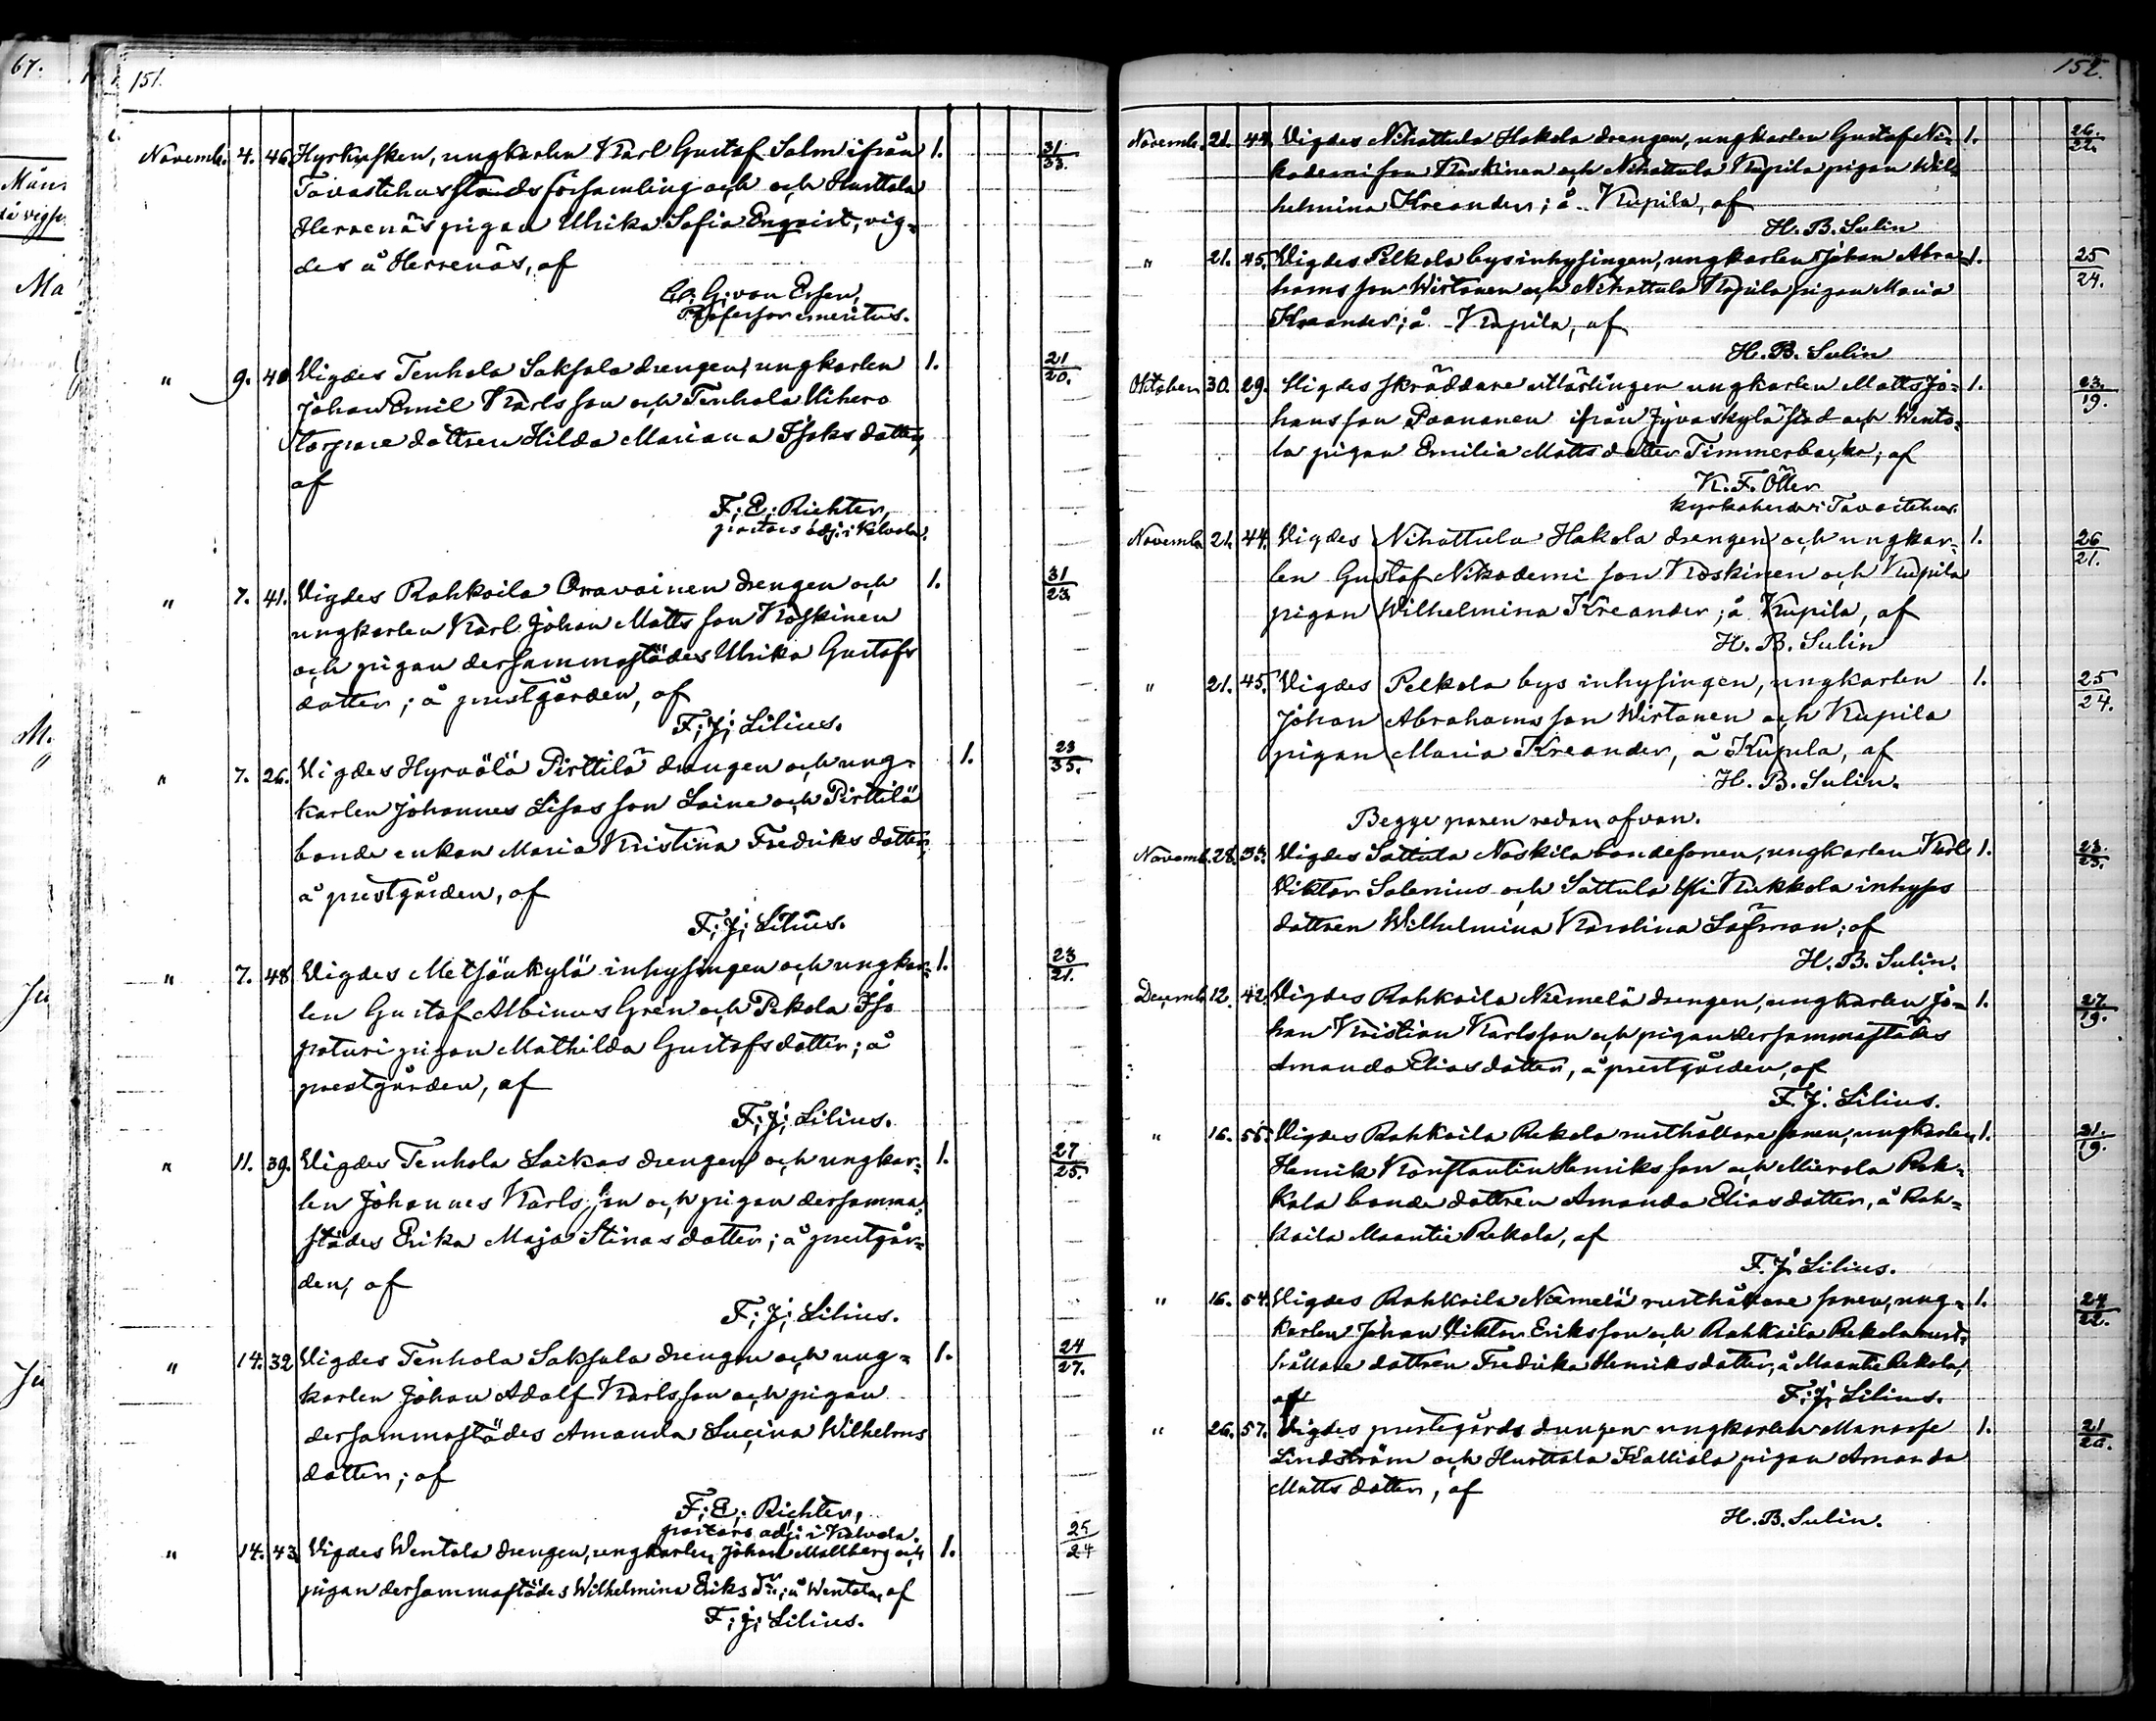 67.
Ma
151.
Novemb. 4. 46. Hyrkusken, ungkarlen Karl Gustaf Salm ifrån 1. 31/33.
Tavastehus stadsförsamling och och Hurttala
Herrenäs pigan Ulrika Sofia Enqvist, vig=
des å Herrenäs, af
G. von Essen,
Professor emeritus.
" 9. 40 Vigdes Tenhola Saksala drengen, ungkarlen 1. 21/20.
Johan Emil Karlsson och Tenhola Uihero
torpare dottren Hilda Mariana Isaksdotter,
af
F; E; Richter,
pastors adj. i Kalvola.
" 7. 41. Vigdes Rahkoila Oravainen drengen och 1. 31/23
ungkarlen Karl Johan Matts son Koskinen
och pigan dersammastädes Ulrika Gustafs
dotter; å prestgården, af
F; J; Lilius.
" 7. 26. Vigdes Hyrvälä Pirttilä drengen och ung= 1. 23/35.
karlen Johannes Lisas son Laine och Pirttilä
bonde enkan Maria Kristina Fredriks dotter,
å prestgården, af
F; J; Lilius.
" 7. 48 Vigdes Metsänkylä inhysingen och ungkar= 1. 23/21.
len Gustaf Albinus Gren och Pekola Iso
paturi pigan Mathilda Gustafsdotter; å
prestgården, af
F; J; Lilius.
" 11. 39. Vigdes Tenhola Laikas drengen och ungkar= 1. 27/25.
len Johannes Karls son och pigan dersamma
städes Erika Maja Stinas dotter; å prestgår=
den, af
F; J; Lilius.
" 14. 32 Vigdes Tenhola Saksala drengen och ung= 1. 24/27.
karlen Johan Adolf Karlsson och pigan
dersammastädes Amanda Lucina Wilhelms
dotter; af
F; E; Richter,
pastors adj; i Kalvola.
" 14. 43. Vigdes Wentola drengen, ungkarlen Johan Mallberg och 1. 25/24
pigan dersammastädes Wilhelmina Eriks dr; å Wentola, af
F; J; Lilius.
152.
Novemb. 21. 44. Vigdes Nihattula Hakola drengen, ungkarlen Gustaf Ni= 1. 26./21.
kodemi son Koskinen och Nihattula Kupila pigan Wil=
helmina Kreander; å Kupila, af
H. B. Sulin
" 21. 45. Vigdes Pelkola bys inhysingen, ungkarlen Johan Abra= 1. 25/24.
hams son Wirtanen och Nihattula Kupila pigan Maria
Kreander; å Kupila, af
H. B. Sulin
Oktober 30. 29. Vigdes skräddare utlärlingen ungkarlen Matts Jo= 1. 23./19.
hansson Paananen ifrån Jyväskylä stad och Wento=
la pigan Emilia Mattsdotter Timmerbacka; af
K. F. Öller
kyrkoherde i Tavastehus.
Novemb. 21. 44. Vigdes Nihattula Hakola drengen och ungkar= 1. 26/21.
len Gustaf Nikodemi son Koskinen och Kupila
pigan Wilhelmina Kreander; å Kupila, af
H. B. Sulin
" 21. 45. Vigdes Pelkola bys inhysingen, ungkarlen 1. 25/24.
Johan Abrahams son Wirtanen och Kupila
pigan Maria Kreander, å Kupila, af
H. B. Sulin.
Begge paren redan ofvan.
Novemb. 28. 53. Vigdes Sattula Naskila bondesonen, ungkarlen Karl 1. 23/23.
Viktor Salenius och Sattula Yli Kukkola inhyses
dottren Wilhelmina Karolina Löfman; af
H. B. Sulin.
Decemb. 12. 42. Vigdes Rahkoila Niemelä drengen, ungkarlen Jo= 1. 27/19.
han Kristian Karlsson och pigan dersammastädes
Amanda Eliasdotter, å prestgården, af
F. J. Lilius.
" 16. 55. Vigdes Rahkoila Rekola rusthållare sonen, ungkarlen 1. 21./19.
Henrik Konstantin Henriksson och Mierola Rek=
kola bonde dottren Amanda Eliasdotter, å Rah=
koila Maantie Rekola, af
F. J. Lilius.
" 16. 54. Vigdes Rahkoila Niemelä rusthållare sonen, ung= 1. 24/22.
karlen Johan Viktor Eriksson och Rahkoila Rekola rust=
hållare dottren Fredrika Henriksdotter, å Maantie Rekola,
af F. J. Lilius.
" 26. 57. Vigdes prestegårds drengen ungkarlen Manasse 1. 21/20.
Lindström och Hurttala Kalliola pigan Amanda
Matts dotter, af
H. B. Sulin.